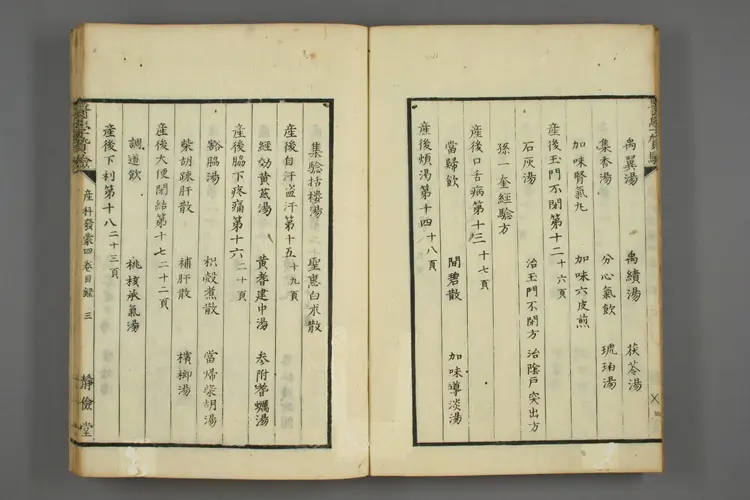 禹翼湯 禹績湯 茯苓湯
集香湯 分心氣飲 琥珀湯
加味腎氣丸 加味六皮煎
産後玉門不閉第十二 十六頁
石灰湯 治玉門不閉方 治陰戶突出方
孫一奎經驗方
産後口舌病第十三 十七頁
當歸飲 間碧散 加味導淡湯
産後煩渴第十四 十八頁
集驗括樓湯 聖惠白朮散
産後自汗盗汗第十五 十九頁
經効黄茋湯 黄耆建中湯 参附湯
産後脇下疼痛第十六 二十頁
豁脇湯 枳殼煮散 當歸柴胡湯
柴胡疎肝散 補肝散 檳榔湯
産後大便閉結第十七 二十二頁
調道飲 桃核承氣湯
産後下利第十八 二十三頁
産科發蒙四卷目録 三 靜儉堂